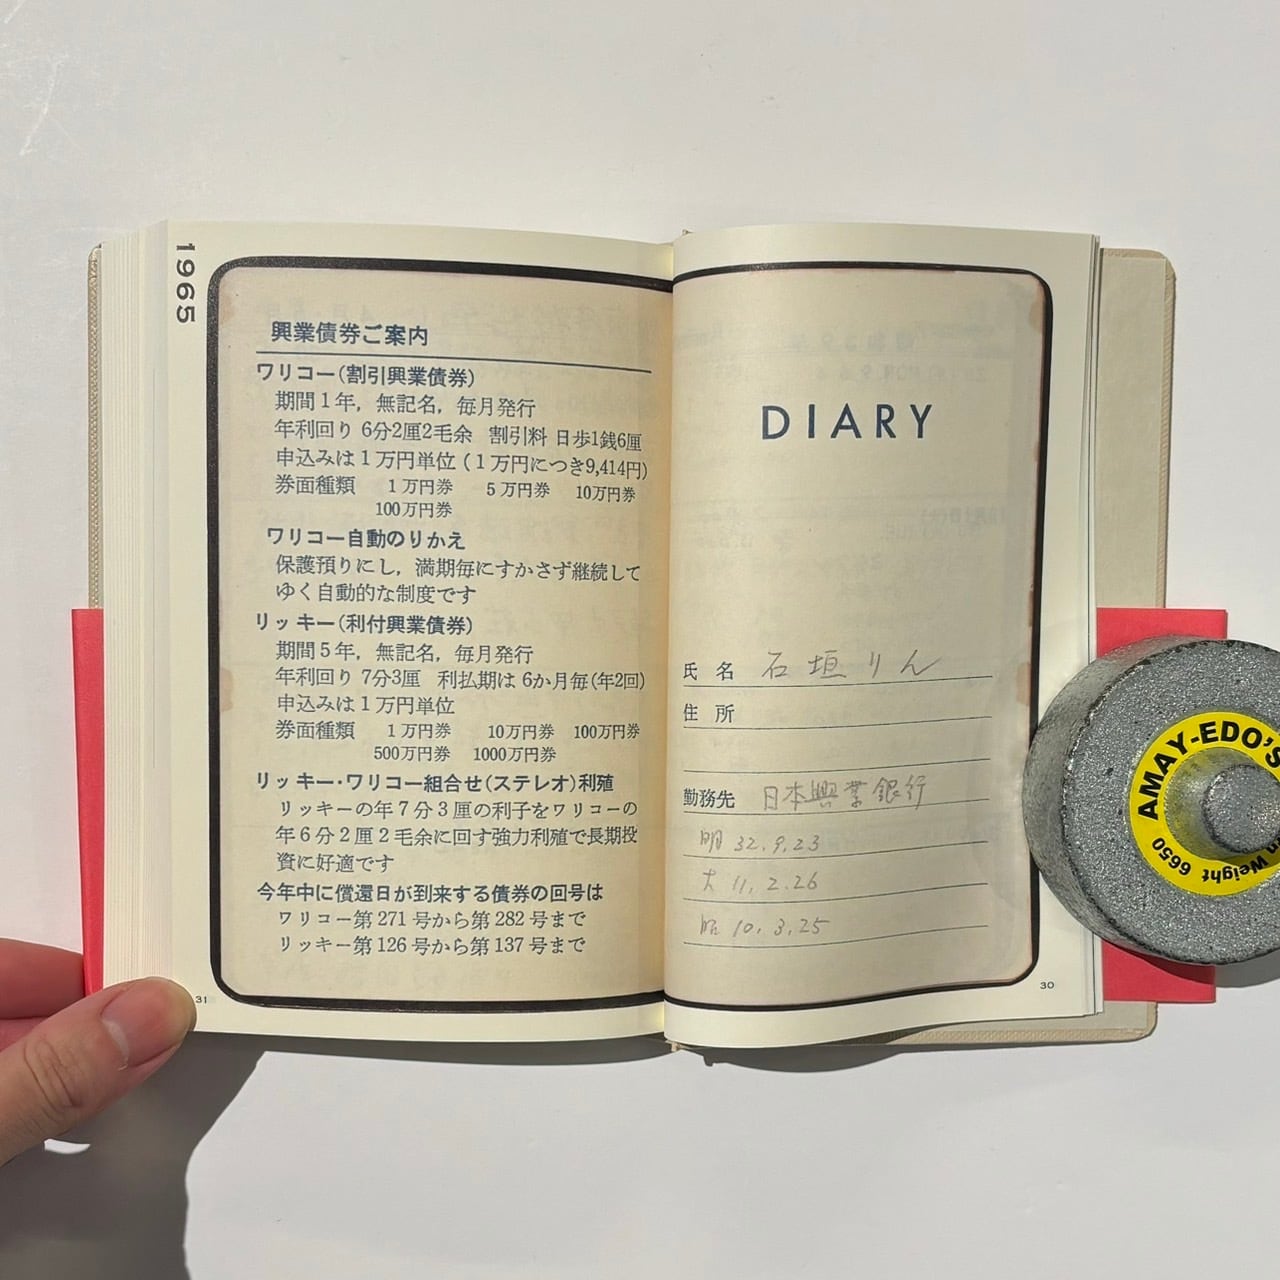 1965
興業債券ご案内
ワリコー(割引興業債券)
期間1年，無記名，毎月発行
年利回り 6分2厘2毛余 割引料 日歩1銭6厘
申込みは1万円単位(1万円につき9,414円)
券面種類 1万円券 5万円券 10万円券
100万円券
ワリコー自動のりかえ
保護預りにし，満期毎にすかさず継続して
ゆく自動的な制度です
リッキー(利付興業債券)
期間5年，無記名，毎月発行
年利回り 7分3厘 利払期は6か月毎(年2回)
申込みは1万円単位
券面種類 1万円券 10万円券 100万円券
500万円券 1000万円券
リッキー・ワリコー組合せ(ステレオ)利殖
リッキーの年7分3厘の利子をワリコーの
年6分2厘2毛余に回す強力利殖で長期投
資に好適です
今年中に償還日が到来する債券の回号は
ワリコー第271号から第282号まで
リッキー第126号から第137号まで
31
DIARY
氏名 石垣りん
住所
勤務先 日本興業銀行
明 32.9.23
大 11.2.26
昭 10.3.25
30
AMAY-EDO'S
Weight 6650